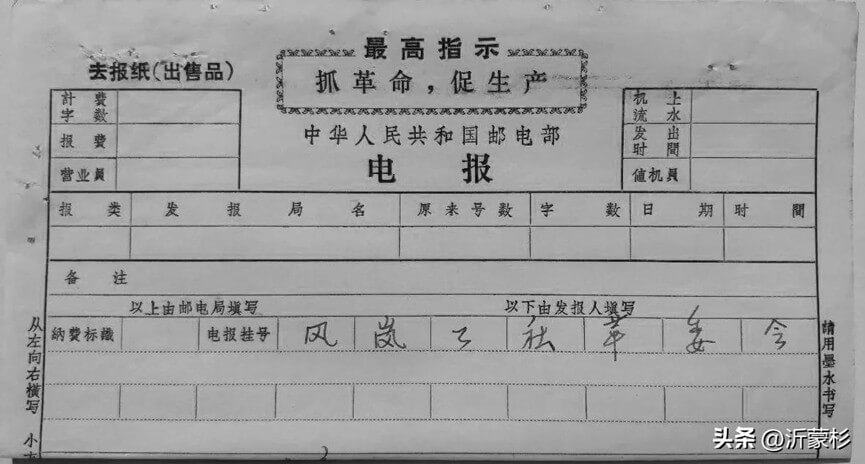 最高指示
抓革命，促生产
去报纸(出售品)
中华人民共和国邮电部
电报
計費字数
报費
营业員
机上流水
发出时間
値机員
报类 发报局名 原来号数 字数 日期 时間
备注
以上由邮电局填写 以下由发报人填写
納費标識 电报挂号 风岚公社革委会
从左向右横写
請用墨水书写
头条 @沂蒙杉